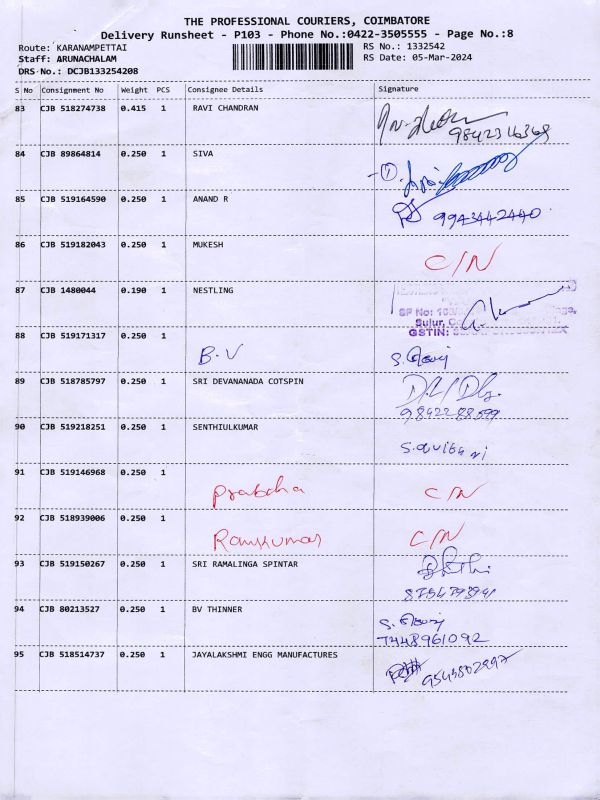 THE PROFESSIONAL COURIERS, COIMBATORE
Delivery Runsheet - P103 - Phone No.:0422-3505555 - Page No.:8
Route: KARANAMPETTAI
RS No.: 1332542
Staff: ARUNACHALAM
RS Date: 05-Mar-2024
DRS No.: DCJB133254208
S No Consignment No Weight PCS Consignee Details Signature
83 CJB 518274738 0.415 1 RAVI CHANDRAN
84 CJB 89864814 0.250 1 SIVA
85 CJB 519164590 0.250 1 ANAND R
9943442440
86 CJB 519182043 0.250 1 MUKESH
C/N
87 CJB 1480044 0.190 1 NESTLING
SF No:
Sulur,
GSTIN:
88 CJB 519171317 0.250 1
B.V
89 CJB 518785797 0.250 1 SRI DEVANANADA COTSPIN
90 CJB 519218251 0.250 1 SENTHIULKUMAR
91 CJB 519146968 0.250 1
C/N
92 CJB 518939006 0.250 1
Ramkumar C/N
93 CJB 519150267 0.250 1 SRI RAMALINGA SPINTAR
94 CJB 80213527 0.250 1 BV THINNER
7448961092
95 CJB 518514737 0.250 1 JAYALAKSHMI ENGG MANUFACTURES